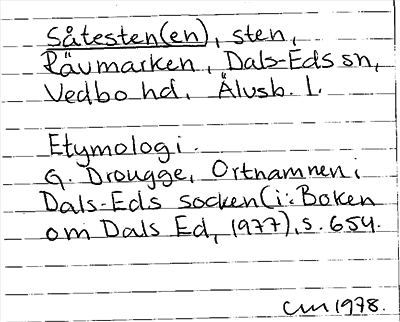 Såtesten(en), sten,
Rävmarken, Dals-Eds sn,
Vedbo hd. Älvsb. l.
Etymologi.
G. Drougge, Ortnamnen i
Dals-Eds socken (i: Boken
om Dals Ed, 1977), s. 654.
CM 1978.